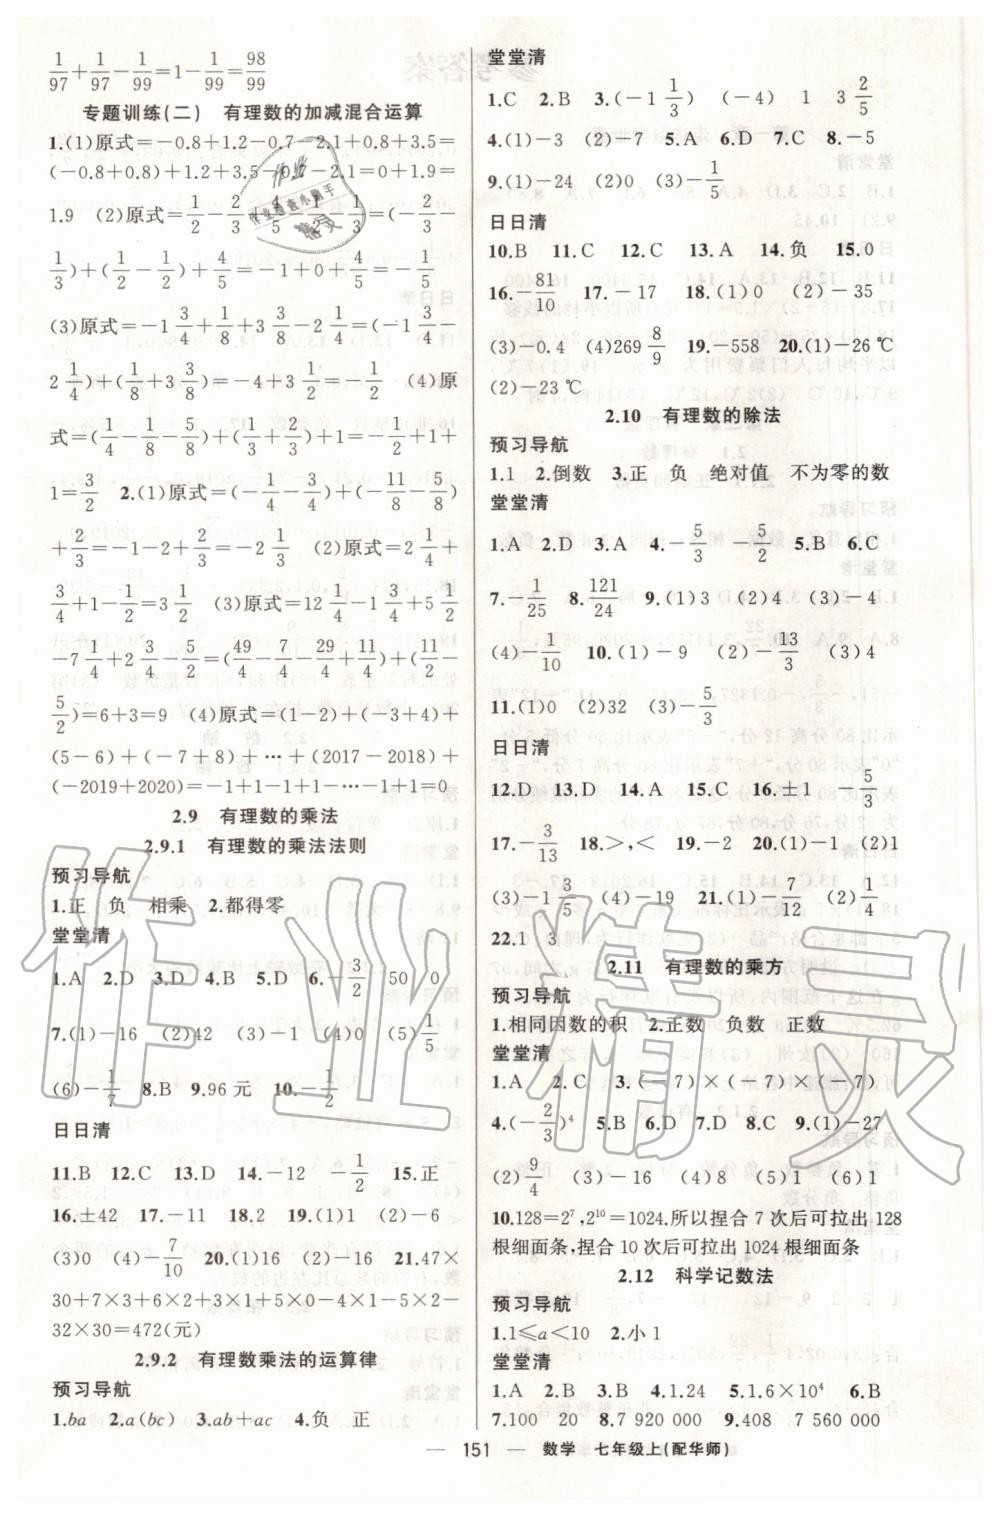 1/97+1/97-1/99=1-1/99=98/99
专题训练(二) 有理数的加减混合运算
1.(1)原式=-0.8+1.2-0.7-2.1+0.8+3.5=
(-0.8+0.8)+1.2+3.5-0.7-2.1=0+1.9=
1.9 (2)原式=-1/2-2/3-4/5-1/2-1/3=-(2/3+
1/3)+(-1/2-1/2)+4/5=-1+0+4/5=-1/5
(3)原式=-1 3/4+1/8+3/8-2 1/4=-(1 3/4+
2 1/4)+(1/8+3/8)=-4+3 1/2=-1/2 (4)原
式=(-1/4-1/8-5/8)+(2/2+1/2)+1=-1/2+1+
1=3/2 2.(1)原式=(-1/4-3/4)+(-11/8-5/8)
+2/3=-1-2+2/3=-2 1/3 (2)原式=2 1/4+
3/4+1-1/2=3 1/2 (3)原式=12 1/4-1 3/4+5 1/2
-7 1/4+2 3/4-5/2=(49/4-7/4-29/4+11/4)+(11/2-
5/2)=6+3=9 (4)原式=(1-2)+(-3+4)+
(5-6)+(-7+8)+…+(2017-2018)+
(-2019+2020)=-1+1-1+1-…-1+1=0
2.9 有理数的乘法
2.9.1 有理数的乘法法则
预习导航
1.正 负 相乘 2.都得零
堂堂清
1.A 2.D 3.D 4.B 5.D 6.-3/2 50 0
7.(1)-16 (2)42 (3)-1 (4)0 (5)1/5
(6)-1/7 8.B 9.96元 10.-1/2
日日清
11.B 12.C 13.D 14.-12 -1/2 15.正
16.±42 17.-11 18.2 19.(1)1 (2)-6
(3)0 (4)-7/10 20.(1)16 (2)6 21.47×
30+7×3+6×2+3×1+5×0-4×1-5×2-
32×30=472(元)
2.9.2 有理数乘法的运算律
预习导航
1.ba 2.a(bc) 3.ab+ac 4.负 正
堂堂清
1.C 2.B 3.(-1 1/3) (-4) 1 3 2/5
4.(1)-3 (2)7 5.A 6.D 7.C 8.-5
9.(1)-24 (2)0 (3)-1/5
日日清
10.B 11.C 12.C 13.A 14.负 15.0
16.-81/10 17.-17 18.(1)0 (2)-35
(3)-0.4 (4)269 8/9 19.-558 20.(1)-26℃
(2)-23℃
2.10 有理数的除法
预习导航
1.1 2.倒数 3.正 负 绝对值 不为零的数
堂堂清
1.A 2.D 3.A 4.-5/3 -5/2 5.B 6.C
7.-1/25 8.121/24 9.(1)3 (2)4 (3)-4
(4)-1/10 10.(1)-9 (2)-13/3 (3)4
11.(1)0 (2)32 (3)-5/3
日日清
12.D 13.D 14.C 15.C 16.±1 -5/3
17.-3/13 18.>,< 19.-2 20.(1)-1 (2)1
(3)-1 3/5 (4)-19 21.(1)-7/12 (2)1/4
22.1 3
2.11 有理数的乘方
预习导航
1.相同因数的积 2.正数 负数 正数
堂堂清
1.A 2.C 3.(-7)×(-7)×(-7)
4.(-2/3)⁴ 5.B 6.D 7.D 8.C 9.(1)-27
(2)9/4 (3)-16 (4)8 (5)1 (6)1
10.128=2⁷,2¹⁰=1024.所以捏合7次后可拉出128
根细面条,捏合10次后可拉出1024根细面条
2.12 科学记数法
预习导航
1.1≤a<10 2.小1
堂堂清
1.A 2.B 3.D 4.1.24 5.1.6×10⁴ 6.B
7.100 20 8.7 920 000 9.408 7 560 000
— 151 — 数学 七年级上(配华师)
作业精灵